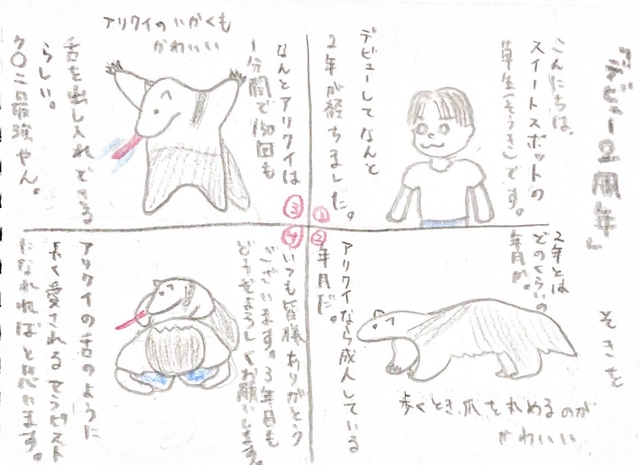 『デビュー2周年』
そきを
①
こんにちは、
スイートスポットの
草生(そうき)です。
デビューしてなんと
2年が経ちました。
②
2年とは
どのくらいの
年月か。
歩くとき、爪を丸めるのが
かわいい
アリクイなら成人している
年月だ。
③
なんとアリクイは
1分間で150回も
アリクイのいかくも
かわいい
舌を出し入れできる
らしい。
ク〇ニ最強やん。
④
いつも皆様ありがとう
ございます。3年目も
どうぞよろしくお願いします。
アリクイの舌のように
長く愛されるセラピスト
になれればと思います。